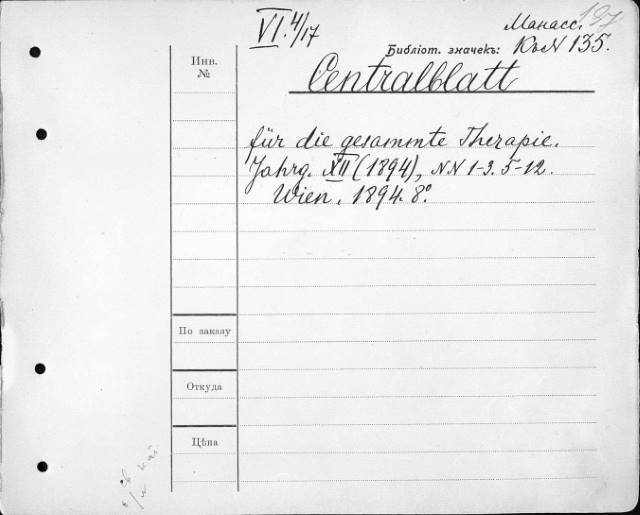 VI. 4/17
Манасс. 197
Библіот. значекъ: Къ N 135.
Инв.
№
Centralblatt
für die gesammte Therapie.
Jahrg. XII (1894), NN 1-3. 5-12.
Wien. 1894. 8°.
По заказу
Откуда
Цѣна